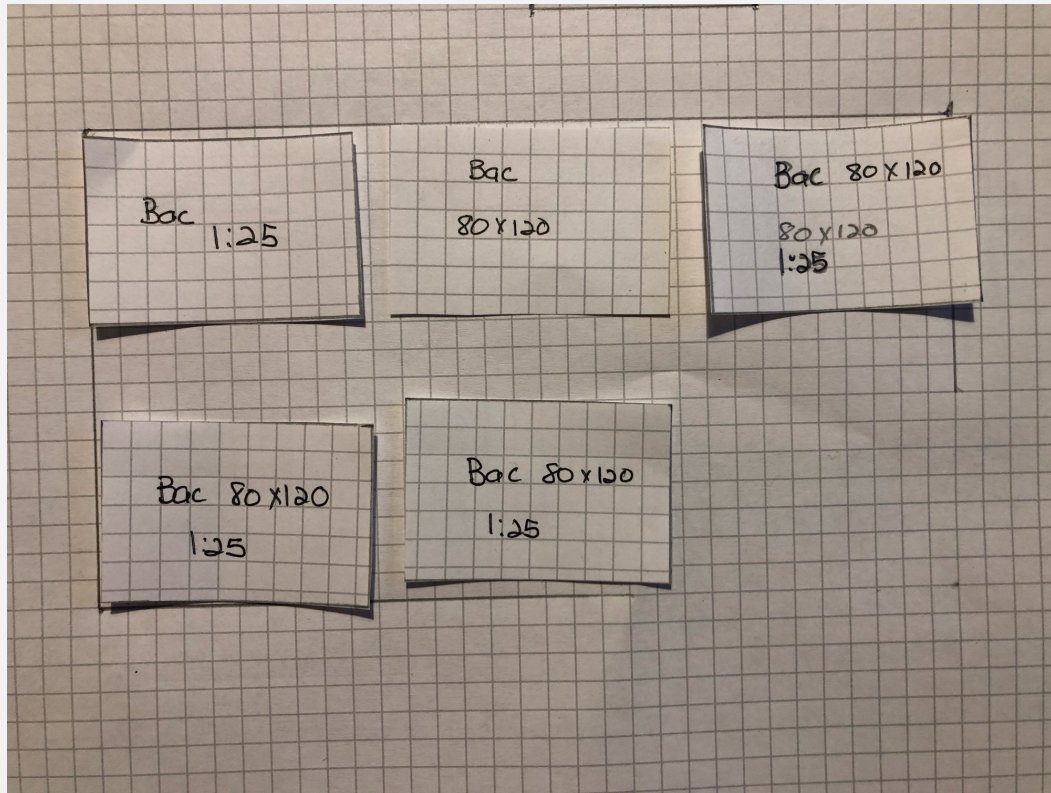 Bac
1:25
Bac
80x120
Bac 80x120
80x120
1:25
Bac 80x120
1:25
Bac 80x120
1:25